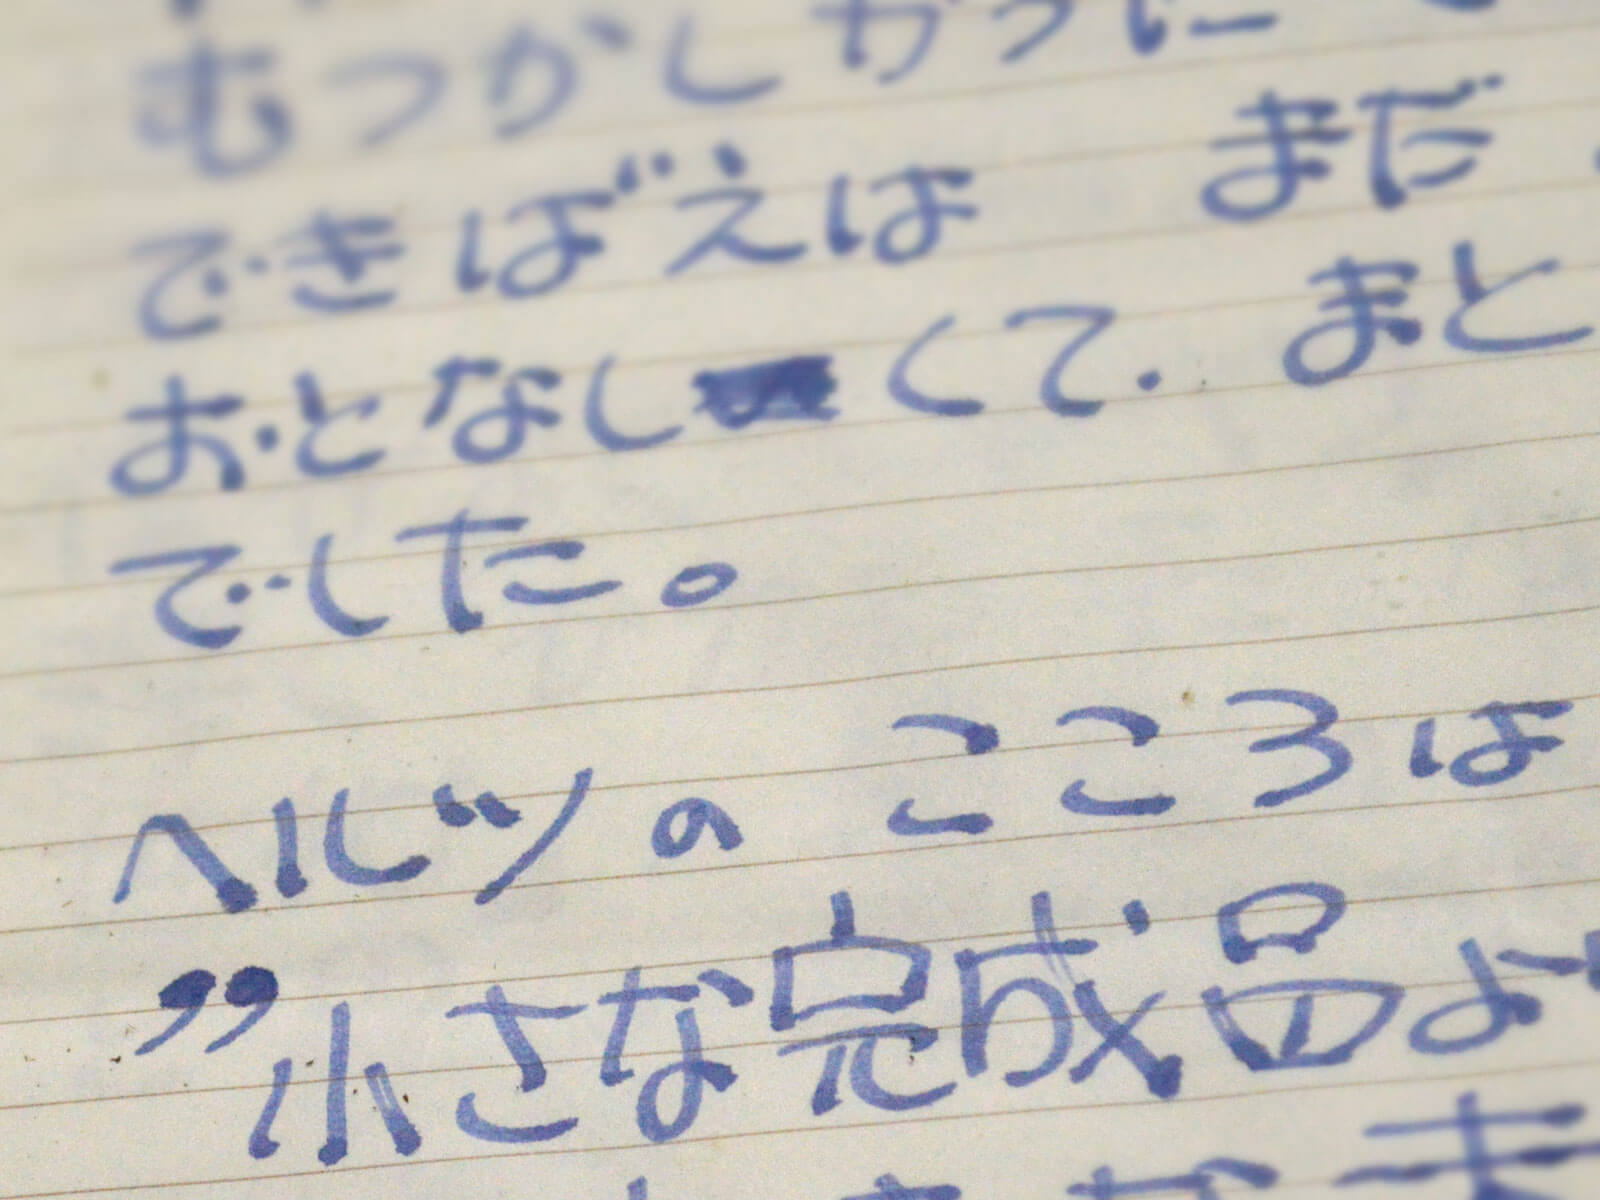 むつかしかった
できばえは　まだ
おとなしくて、まと
でした。
ヘルツの　こころは
”小さな完成品よ